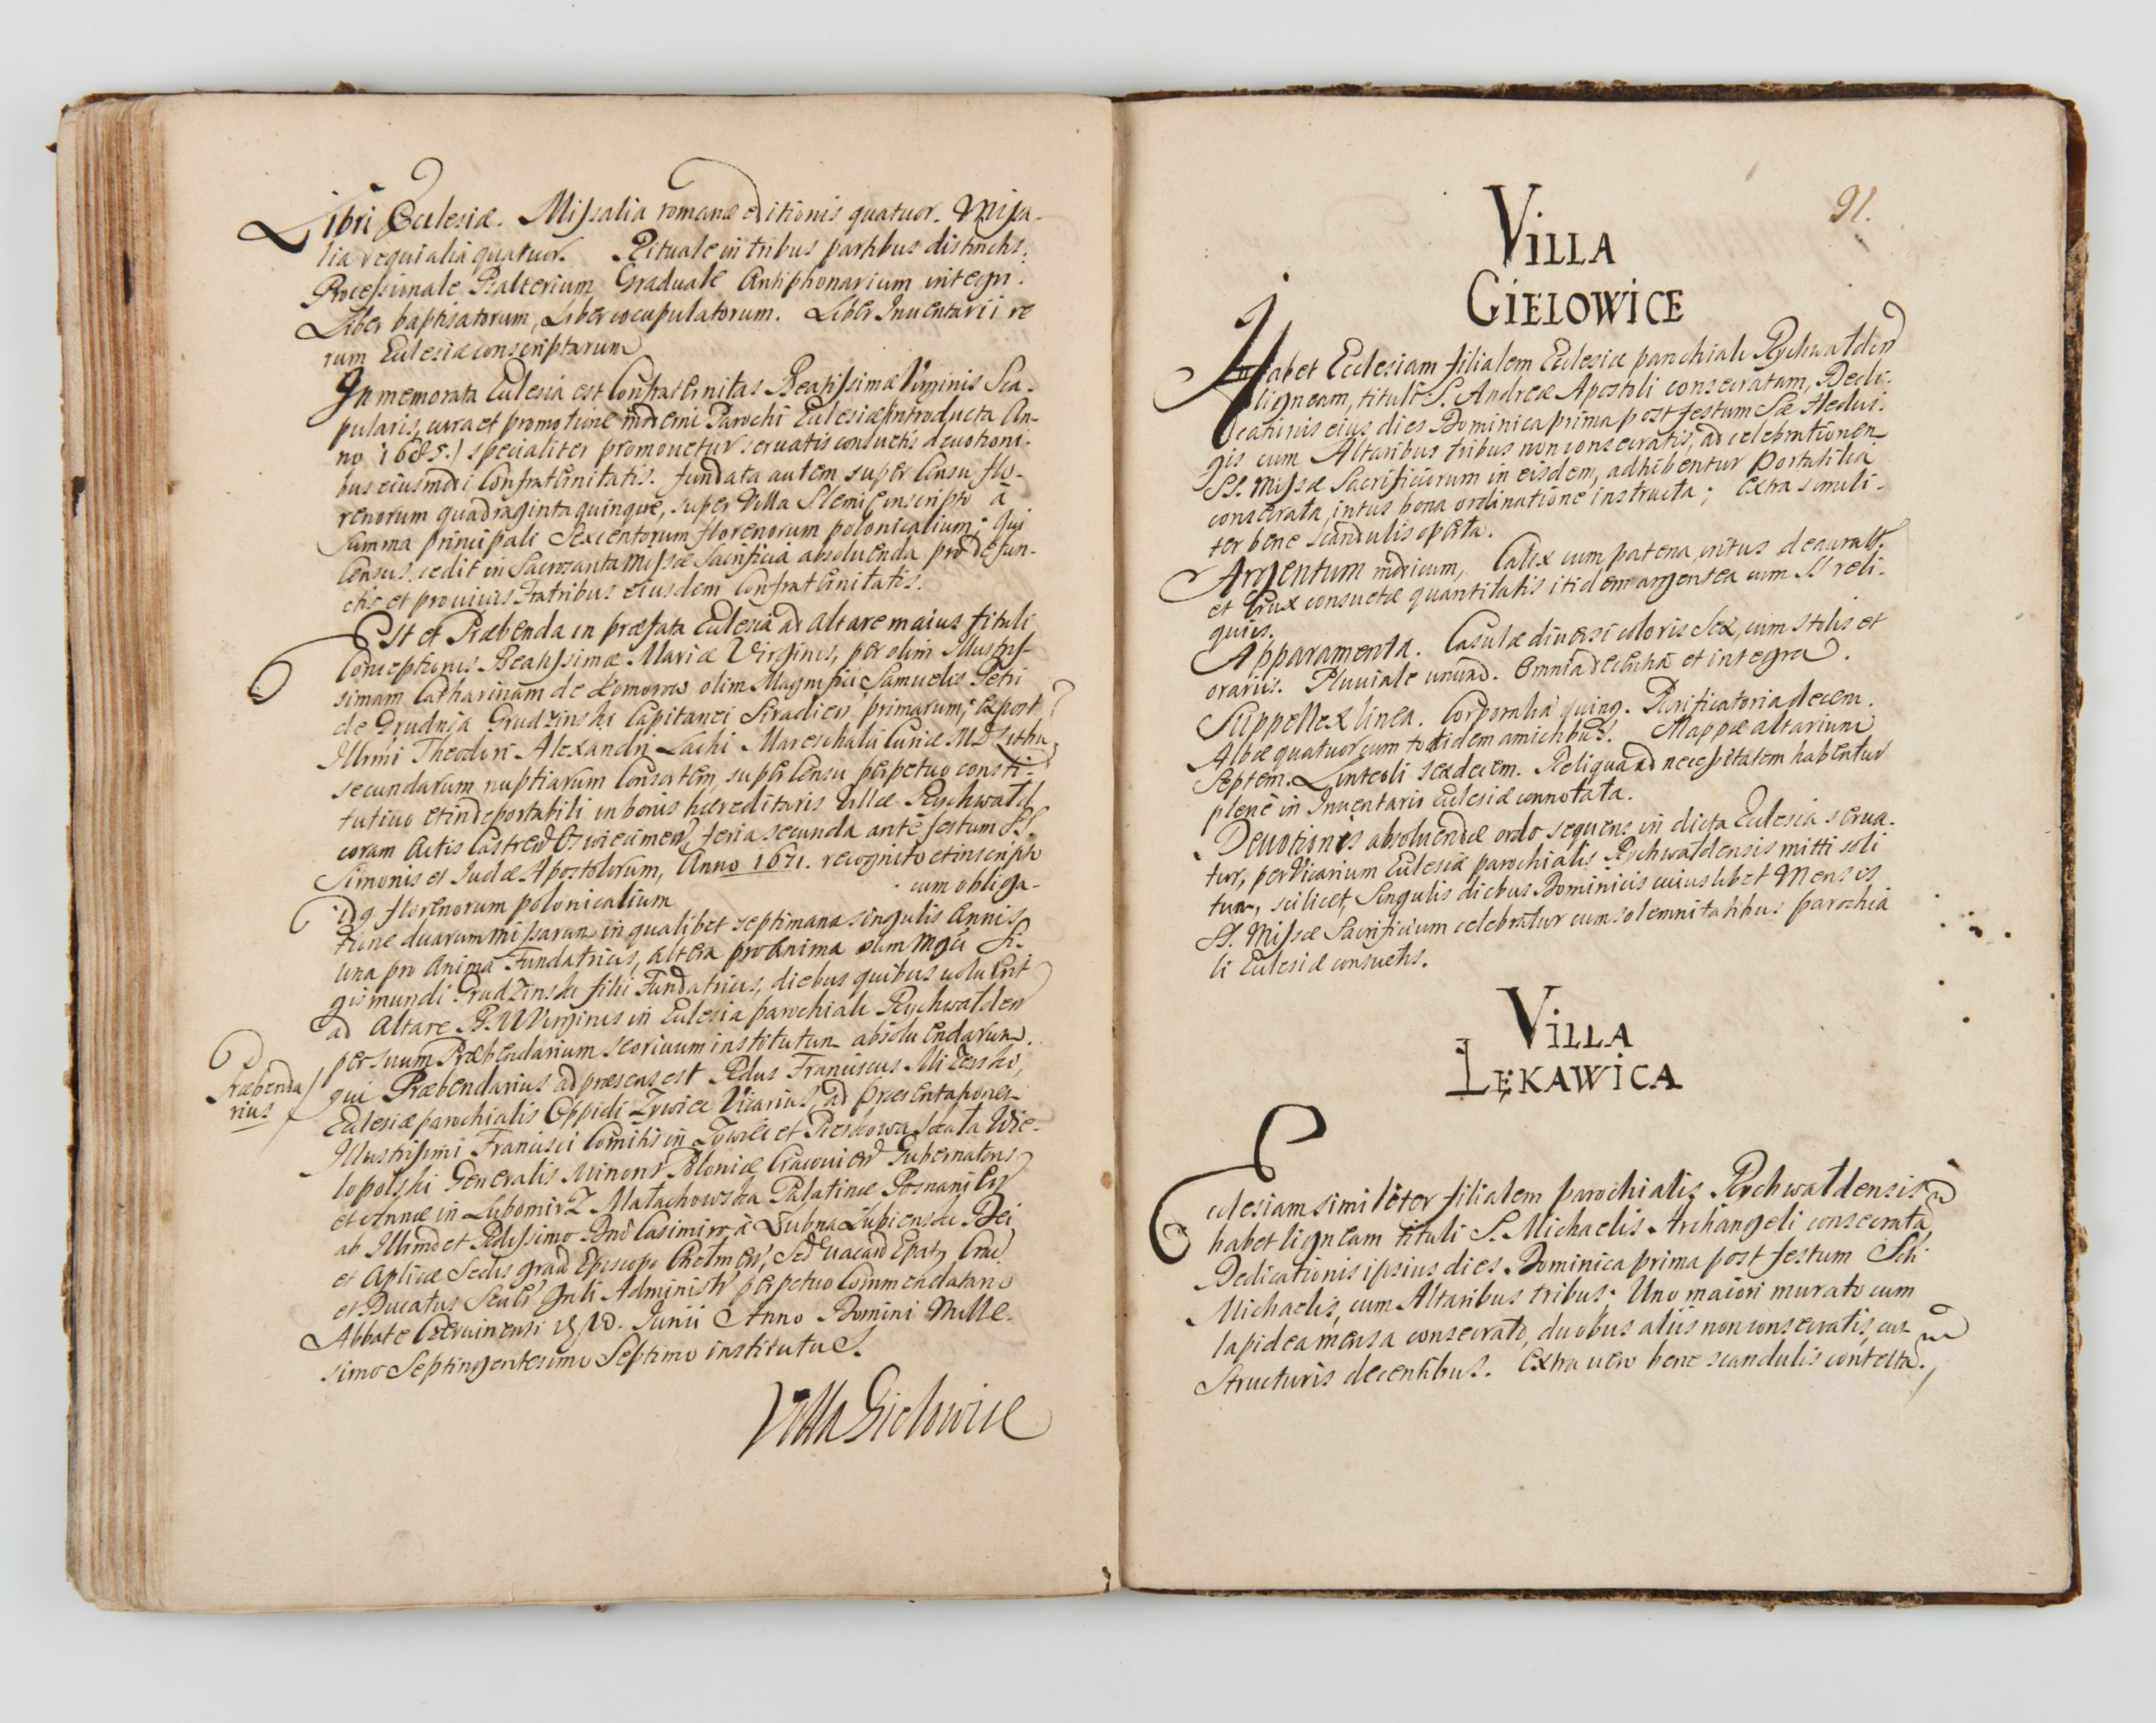 Libri Ecclesiæ. Missalia romanæ editionis quatuor. Missa-
lia requialia quatuor. Rituale in tribus partibus distinctis.
Processionale Psalterium Graduale Antiphonarium integri.
Liber baptisatorum, Liber cocupulatorum. Liber Inuentarii re
rum Ecclesiæ conscriptarum
In memorata Ecclesia est Confraternitas Beatissimæ Virginis Sca-
pularis, cura et promotione moderni Parochi Ecclesiæ introducta An-
no 1685.) specialiter promouetur seruatis consuetis deuotioni-
bus eiusmodi Confraternitatis. fundata autem super Censu flo-
renorum quadraginta quinque, super Villa Slemie inscripto à
Summa principali Sexcentorum florenorum polonicalium; qui
Census cedit in Sacrosancta Missæ Sacrificia absoluenda pro defun-
ctis et pro viuis Fratribus eiusdem Confraternitatis.
Est et Præbenda in præfata Ecclesia ad Altare maius tituli
Conceptionis Beatissimæ Mariæ Virginis, per olim Illustris-
simam Catharinam de Komorow olim Magnifici Samuelis Petri
de Grudnia Grudzinski Capitanei Siradien primarum; Expost
Illrmi Theodori Alexandri Lachi Mareschalii Curiæ MD Lithu
secundarum nuptiarum Consortem, super Censu perpetuo consti-
tutiuo et inde portabili in bonis hæreditariis Villæ Rychwałd
coram Actis Castren Oswiecimen, feria secunda ante festum SS.
Simonis et Judæ Apostolorum, Anno 1671. recognito et inscripto
florenorum polonicalium cum obliga-
tione duarum missarum in qualibet septimana singulis Annis
una pro Anima Fundatricis, altera pro Anima olim Mgci Si-
gismundi Grudzinski filii Fundatricis, diebus quibus voluerit
ad Altare B. M Virginis in Ecclesia parochiali Rychwałden
per suum Præbendarium seoriuum institutum absoluendarum.
Præbenda
rius
qui Præbendarius ad præsens est Rdus Franciscus
Ecclesiæ parochialis Oppidi Zywiec Vicarius, ad Præsentationem
Illustrissimi Francisci Comitis in Zywiec et Pieskowa Skała Wie-
lopolski Generalis Minoris Poloniæ Cracouien Gubernatoris
et Annæ in Lubomierz Małachowska Palatinæ Posnanien
ab Illrmo et Rdissimo Dno Casimiro à Łubna Łubienski Dei
et Aplicæ Sedis grad Episcopo Chelmen, Sed Vacan Epatq Crac
et Ducatus Seuer Gnli Administr perpetuo Commendatario
Abbate Czeruinensi Junii Anno Domini Mille-
simo Septingentesimo Septimo institutus.
Villa Gielowice
91.
VILLA
GIELOWICE
Habet Ecclesiam filialem Ecclesiæ parochiali Rychwałden
ligneam, titulo S. Andreæ Apostoli consecratam, Dedi-
cationis eius dies Dominica prima post festum Sæ Hedui-
gis cum Altaribus tribus non consecratis, ad celebrationem
SS. Missæ Sacrificiorum in eisdem, adhibentur Portatilia
consecrata, intus bona ordinatione instructa; Extra simili-
ter bene scandulis operta.
Argentum modicum, Calix cum patena, intus deaurat.
et Crux consuetæ quantitatis itidem argentea cum SS reli-
quiis.
Apparamenta. Casulæ diuersi coloris Sex, cum stolis et
orariis. Pluuiale unum. Omnia decentia et integra.
Suppellex linea. Corporalia quinq. Purificatoria decem.
Albæ quatuor cum totidem amictibus. Mappæ altarium
Septem. Linteoli sexdecem. Reliqua ad necessitatem habentur
plenè in Inuentario Ecclesiæ connotata.
Deuotionis absoluendæ ordo sequens in dicta Ecclesia serua-
tur, per Vicarium Ecclesiæ parochialis Rychwałdensis mitti soli
tum, scilicet, Singulis diebus Dominicis cuiuslibet Mensis
SS. Missæ Sacrificium celebratur cum solemnitatibus parochia
li Ecclesiæ consuetis.
VILLA
LĘKAWICA
Ecclesiam similiter filialem parochialis Rychwałdensis
habet ligneam tituli S. Michaelis Archangeli consecrata
Dedicationis ipsius dies Dominica prima post festum Sti
Michaelis, cum Altaribus tribus. Uno maiori murato cum
lapidea mensa consecrato, duobus aliis non consecratis, cum
Structuris decentibus. Extra uero bene scandulis contecta.